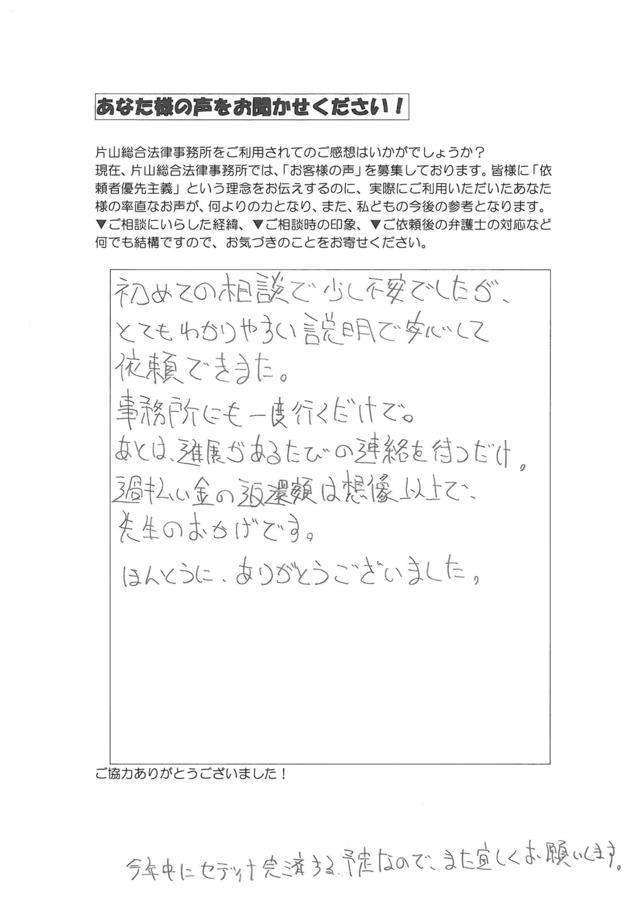 あなた様の声をお聞かせください！
片山総合法律事務所をご利用されてのご感想はいかがでしょうか？
現在、片山総合法律事務所では、「お客様の声」を募集しております。皆様に「依
頼者優先主義」という理念をお伝えするのに、実際にご利用いただいたあなた
様の率直なお声が、何よりの力となり、また、私どもの今後の参考となります。
▼ご相談にいらした経緯、▼ご相談時の印象、▼ご依頼後の弁護士の対応など
何でも結構ですので、お気づきのことをお寄せください。
初めての相談で少し不安でしたが、
とてもわかりやすい説明で安心して
依頼できまた。
事務所にも一度行くだけで。
あとは、進展があるたびの連絡を待つだけ。
過払い金の返還額は想像以上で、
先生のおかげです。
ほんとうに、ありがとうございました。
ご協力ありがとうございました！
今年中にセディナ完済する予定なので、また宜しくお願いします。